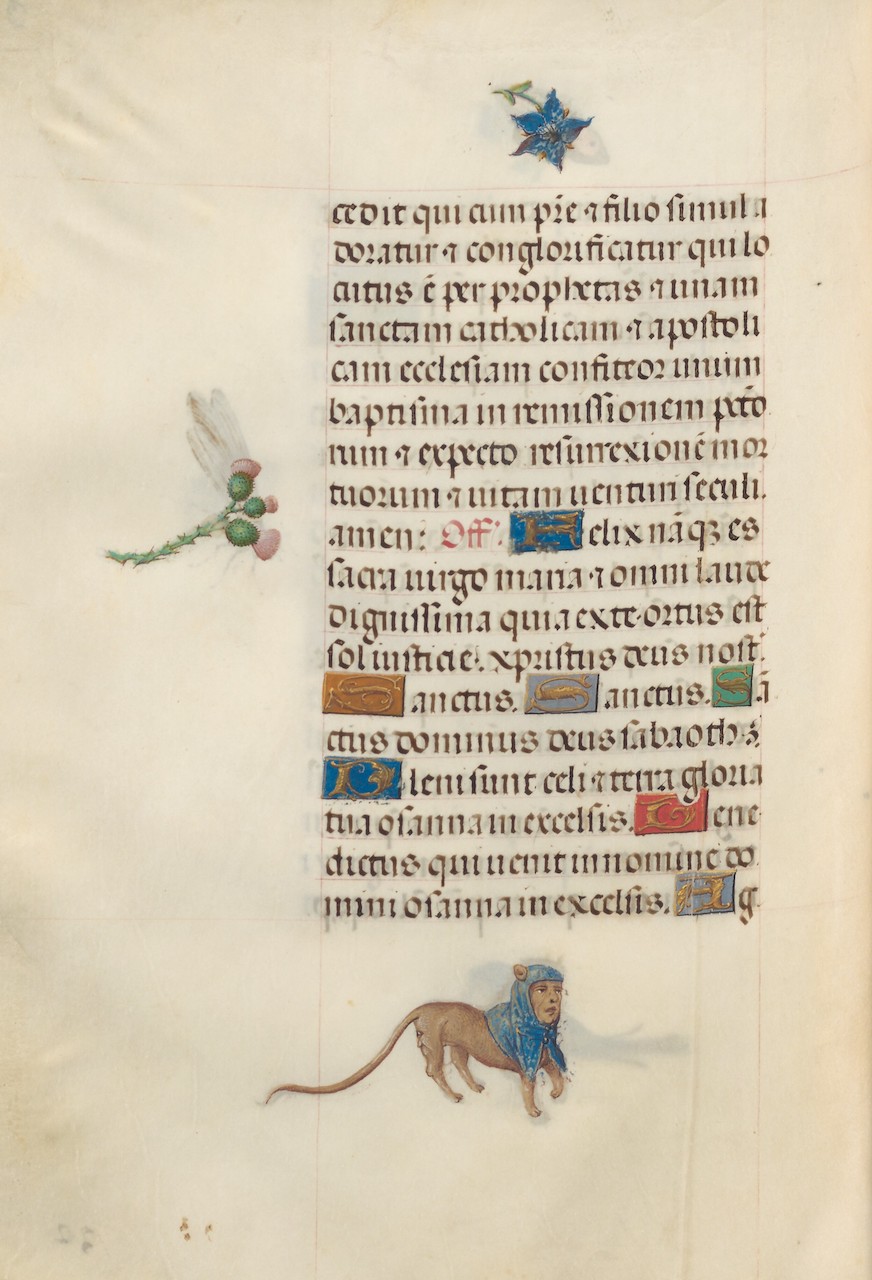 cedit qui cum pr̄e ⁊ filio simul a
doratur ⁊ conglorificatur qui lo
cutus ē per prophetas ⁊ unam
sanctam catholicam ⁊ apostoli
cam ecclesiam confiteor unum
baptisma in remissionem pctō
rum ⁊ expecto resurrexionē mor
tuorum ⁊ uitam uenturi seculi.
amen: Off: Felix nāqꝫ es
sacra uirgo maria ⁊ omni laude
dignissima quia ex te ortus est
sol iusticie. xpristus deus nost̄.
Sanctus. Sanctus. Sā
ctus dominus deus sabaoth.
Pleni sunt celi ⁊ terra gloria
tua osanna in excelsis. Bene
dictus qui uenit in nomine do
mini osanna in excelsis. Ag